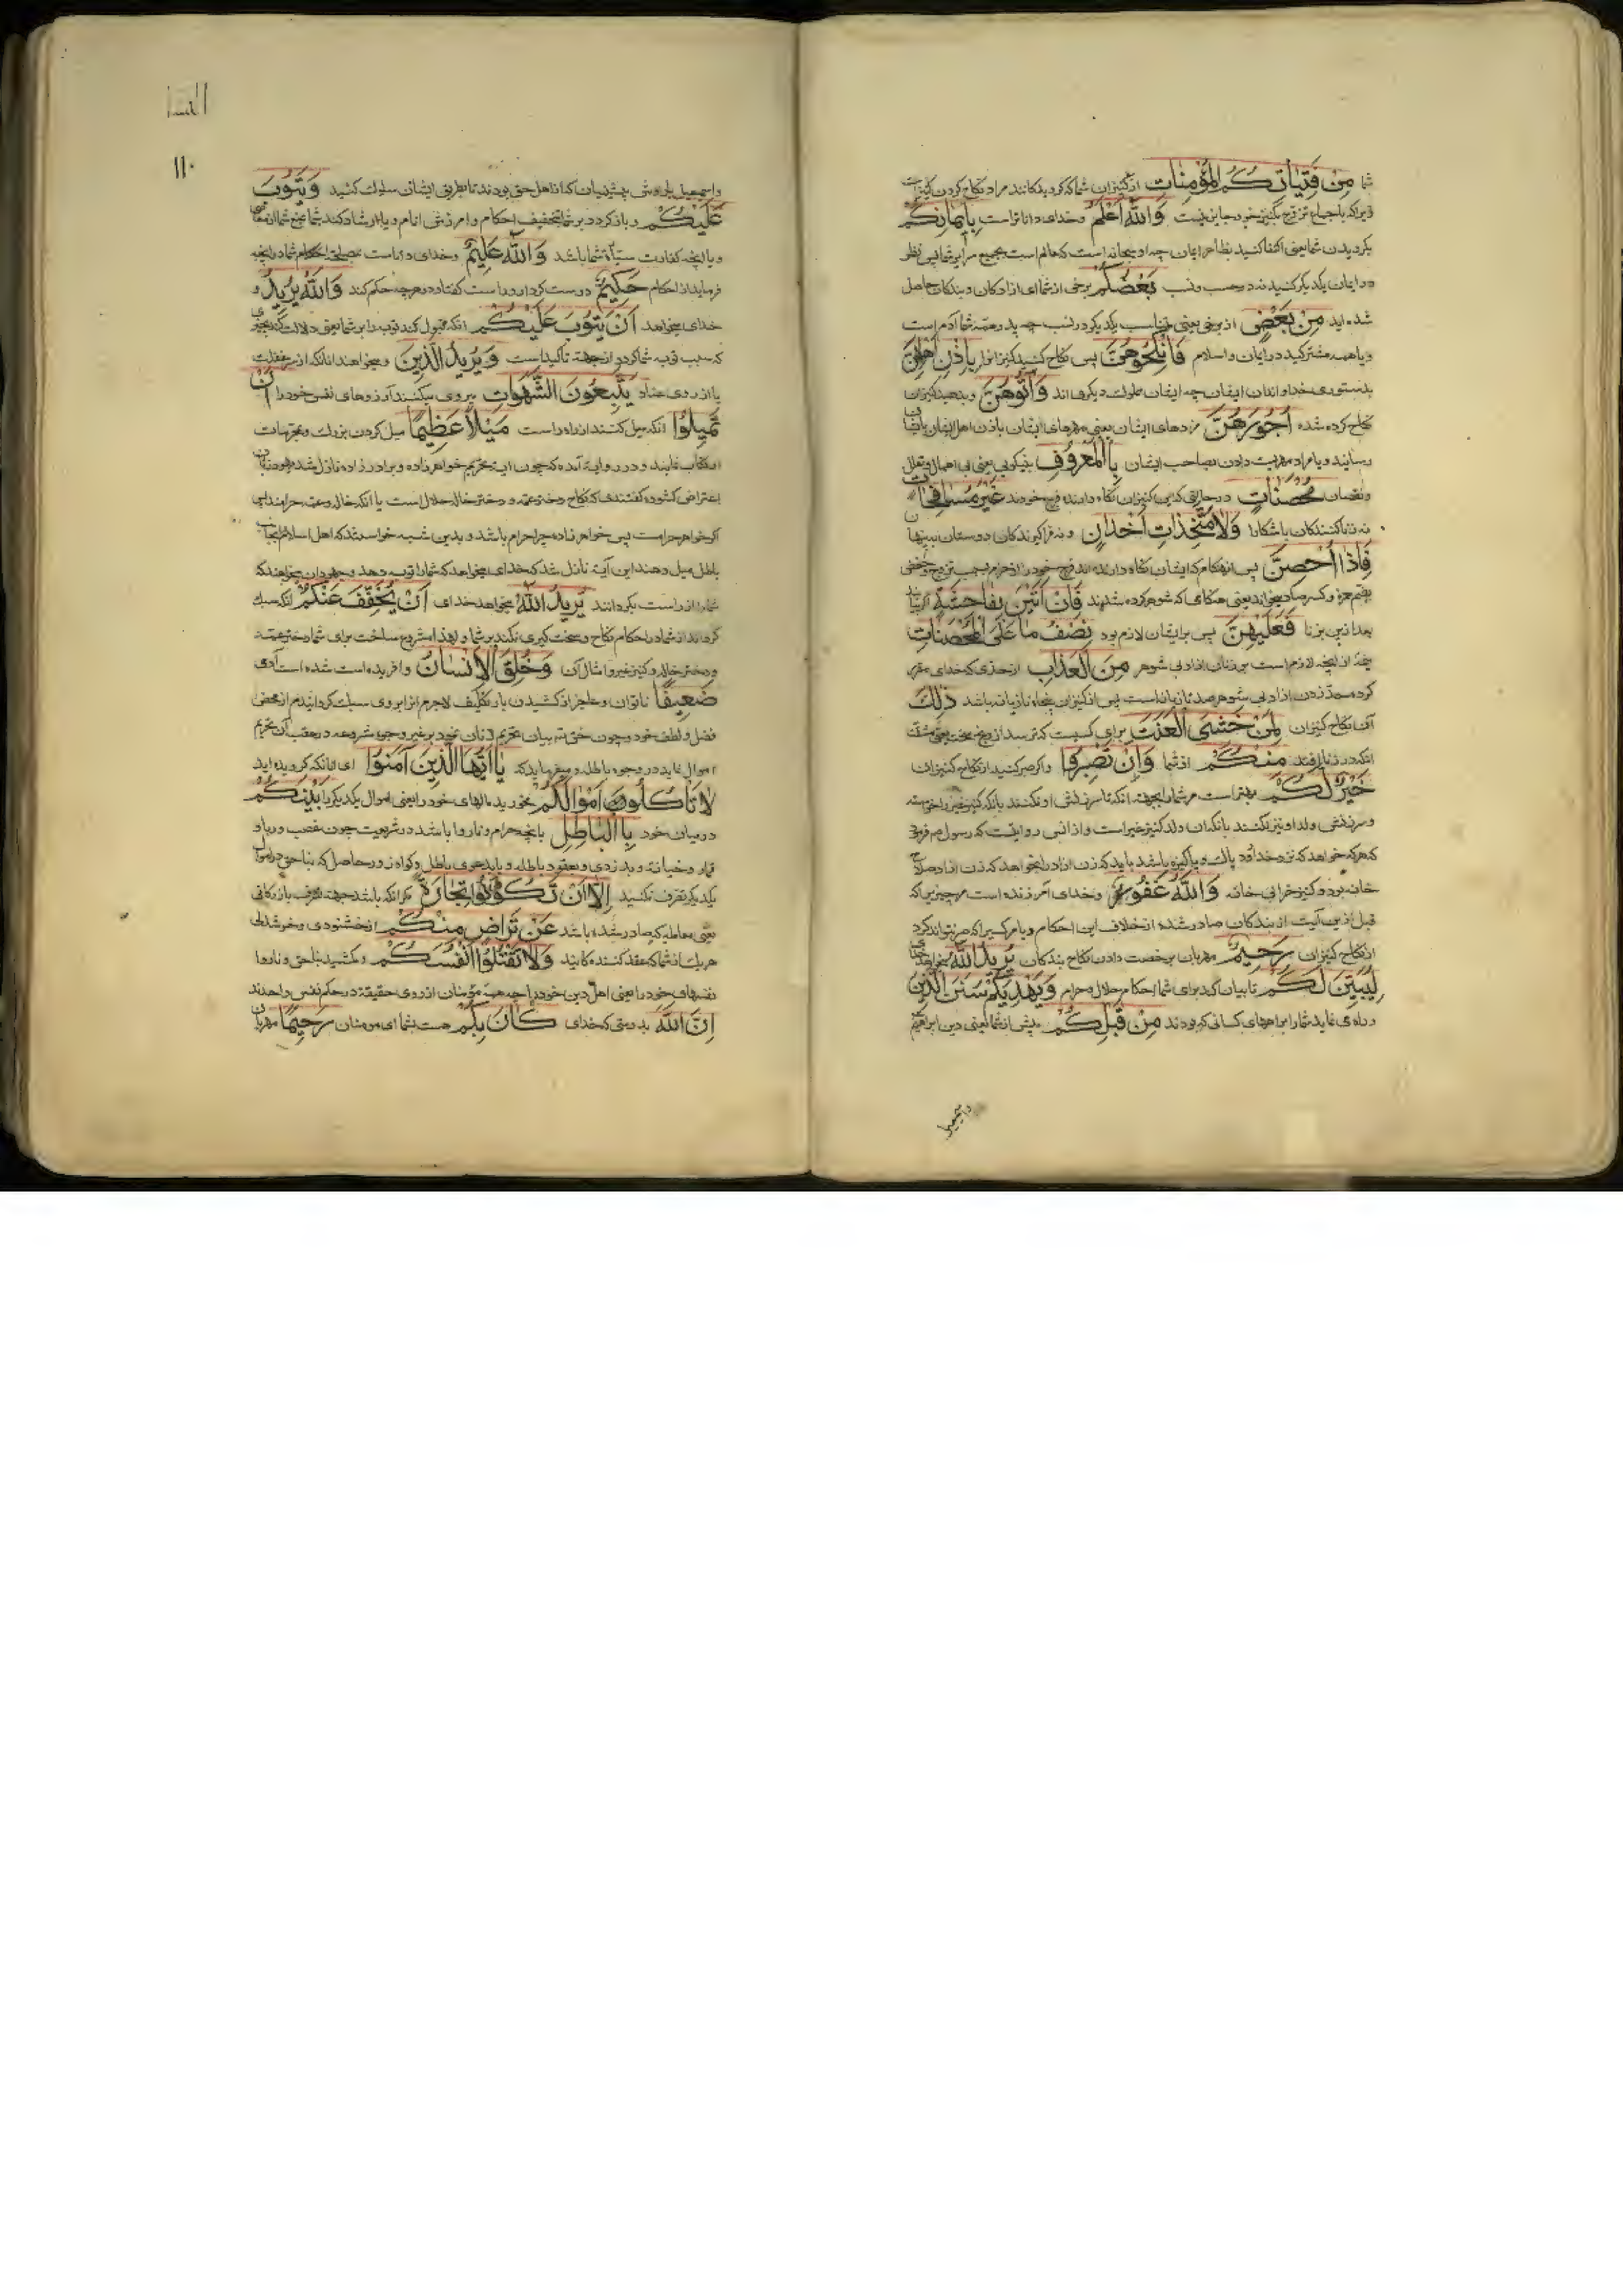 شما مِنْ فَتَيَاتِكُمُ الْمُؤْمِنَاتِ از کنیزان شما که کرویدکانند مراد نکاح کردن کنیز
زیرا که باجماع تزویج بکنیز خود جایز نیست وَاللّٰهُ اَعْلَمُ وخدای داناتر است بِاِيمَانِكُمْ
بکرویدن شما یعنی اکتفا کنید بظاهر ایمان چه او سبحانه است که عالم است بجمیع سرایر شما پس نظر
در ایمان یکدیگر کنید نه در حسب ونسب بَعْضُكُمْ برخی از شما ای ازادکان وبندکان حاصل
شده اید مِنْ بَعْضٍ از برخی یعنی متناسب یکدیگرید در نسب چه پدر همه شما آدم است
ویا همه مشترکید در ایمان واسلام فَانْكِحُوهُنَّ پس نکاح کنید کنیزانرا بِاِذْنِ اَهْلِهِنَّ
بدستوری خداوندان ایشان چه ایشان مملوک دیگری اند وَاٰتُوهُنَّ وبدهید کنیزان
نکاح کرده شده اُجُورَهُنَّ مزدهای ایشان یعنی مهرهای ایشان باذن اهل ایشان بایشان
رسانید ویا مراد مهریت دادن بصاحب ایشان بِالْمَعْرُوفِ بنیکویی یعنی بی اهمال وتعلل
ونقصان مُحْصَنَاتٍ در حالتی که این کنیزان نکاه دارنده فرج خودند غَيْرَ مُسَافِحَاتٍ
نه زنا کنندکان باشکارا وَلَا مُتَّخِذَاتِ اَخْدَانٍ ونه فرا گیرندکان دوستان پنهان
فَاِذَا اُحْصِنَّ پس ازهنکام که ایشان نکاه دارنده اند فرج خود را از حرام بسبب تزویج وحفص
بضم همزه وکسر صاد میخواند یعنی هنکامی که شوهر کرده شدند فَاِنْ اَتَيْنَ بِفَاحِشَةٍ اکر بیایند
بعد ازین بزنا فَعَلَيْهِنَّ پس بر ایشان لازم بود نِصْفُ مَا عَلَى الْمُحْصَنَاتِ
نیمهٔ از انچه لازم است بر زنان ازاد بی شوهر مِنَ الْعَذَابِ از حدی که خدای مقرر
کرده وحد زدن ازاد بی شوهر صد تازیانه است پس از کنیزان پنجاه تازیانه باشد ذٰلِكَ
آن نکاح کنیزان لِمَنْ خَشِىَ الْعَنَتَ برای کسیست که ترسد از رنج ومحنت یعنی مشقت
انکه در زنا افتد مِنْكُمْ از شما وَاَنْ تَصْبِرُوا واکر صبر کنید از نکاح کنیزان
خَيْرٌ لَكُمْ بهتر است مر شما را بجهت انکه تا سرزنش او نکنند بانکه کنیز غیر را خواسته
وسرزنش ولد او نیز نکنند بانکه ان ولد کنیز غیر است واز انس روایتست که رسول صم فرمود
که هر که خواهد که نزد خدا رود پاک وپاکیزه باشد باید که زن ازاد را بخواهد که زن ازاد صلاح
خانه بود وکنیز خرابی خانه وَاللّٰهُ غَفُورٌ وخدای آمرزنده است مر چیزیرا که
قبل ازین آیت از بندکان صادر شده از خلاف این احکام ویا مر کسیرا که صبر نتواند کرد
از نکاح کنیزان رَحِيمٌ مهربان برخصت دادن نکاح بندکان يُرِيدُ اللّٰهُ میخواهد خدای
لِيُبَيِّنَ لَكُمْ تا بیان کند برای شما احکام حلال وحرام وَيَهْدِيَكُمْ سُنَنَ الَّذِينَ
وراه می نماید شما را براههای کسانی که بودند مِنْ قَبْلِكُمْ پیش از شما یعنی دین ابراهیم
واسمعیل
النسا
١١٠
واسمعیل یا روش پیشینیان که از اهل حق بودند تا بطریق ایشان سلوک کنید وَيَتُوبَ
عَلَيْكُمْ وباز کردد بر شما بتخفیف احکام وامرزش اثام ویا ارشاد کند شما را بمنع شما از معاصی
ویا بانچه کفارت سیآت شما باشد وَاللّٰهُ عَلِيمٌ وخدای داناست بمصلحت احکام شما در انچه
فرماید از احکام حَكِيمٌ درست کردار وراست کفتار در هرچه حکم کند وَاللّٰهُ يُرِيدُ و
خدای میخواهد اَنْ يَتُوبَ عَلَيْكُمْ انکه قبول کند توبه را بر شما یعنی دلالت کند بچیزی
که سبب توبه شما کردد از جهت تاکید است وَيُرِيدُ الَّذِينَ ومیخواهند انانکه از سر غفلت
یا از روی عناد يَتَّبِعُونَ الشَّهَوَاتِ پیروی میکنند آرزوهای نفس خود را اَنْ
تَمِيلُوا انکه میل کنند از راه راست مَيْلًا عَظِيمًا میل کردن بزرک ومحرمات
ارتکاب نمایند ودر روایة آمده که چون ایة تحریم خواهرزاده وبرادرزاده نازل شد یهودیان
اعتراض کشوده کفتندی که نکاح دختر عمه ودختر خاله حلال است با انکه خاله وعمه حرامند پس
اکر خواهر حرامست پس خواهرزاده چرا حرام باشد وبدین شبهه خواستند که اهل اسلام را بجانب
باطل میل دهند این آیة نازل شد که خدای میخواهد که شما را توبه دهد ویهودان میخواهند که
شما را از راست بکردانند يُرِيدُ اللّٰهُ میخواهد خدای اَنْ يُخَفِّفَ عَنْكُمْ انکه سبک
کرداند از شما در احکام نکاح وسخت کیری نکند بر شما ولهذا مشروع ساخت برای شما دختر عمه
ودختر خاله وکنیز غیر وامثال آن وَخُلِقَ الْاِنْسَانُ وافریده است شده است آدمی
ضَعِيفًا ناتوان وعاجز از کشیدن بار تکلیف لاجرم انرا بر وی سبک کردانیدم از محض
فضل ولطف خود وچون حق تع بیان تحریم زنان نمود بر غیر وجوه مشروعه در عقب آن تحریم
اموال نماید در وجوه باطله ومیفرماید که يَا اَيُّهَا الَّذِينَ اٰمَنُوا ای انانکه کرویده اید
لَا تَاْكُلُوا اَمْوَالَكُمْ مخورید مالهای خود را یعنی اموال یکدیکر را بَيْنَكُمْ
در میان خود بِالْبَاطِلِ بانچه حرام وناروا باشد در شریعت چون غصب وربا و
قمار وخیانة وبدزدی وبعقود باطله وبا بدعوی باطل وکواه زور حاصل که بناحق در اموال
یکدیکر تصرف نکنید اِلَّا اَنْ تَكُونَ تِجَارَةً مکر انکه باشد جهة تصرف بازرکانی
یعنی معامله که صادر شده باشد عَنْ تَرَاضٍ مِنْكُمْ از خشنودی وخوشدلی
هر یک از شما که عقد کننده کانید وَلَا تَقْتُلُوا اَنْفُسَكُمْ ومکشید بناحق وناروا
نفسهای خود را یعنی اهل دین خود را چه همه مؤمنان از روی حقیقة در حکم نفس واحدند
اِنَّ اللّٰهَ بدرستی که خدای كَانَ بِكُمْ هست بشما ای مومنان رَحِيمًا مهربان